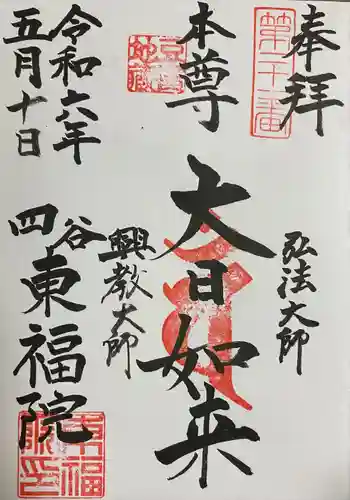 奉拝
第十二番
弘法大師
本尊
大日如来
興教大師
令和六年
五月十日
四谷
東福院